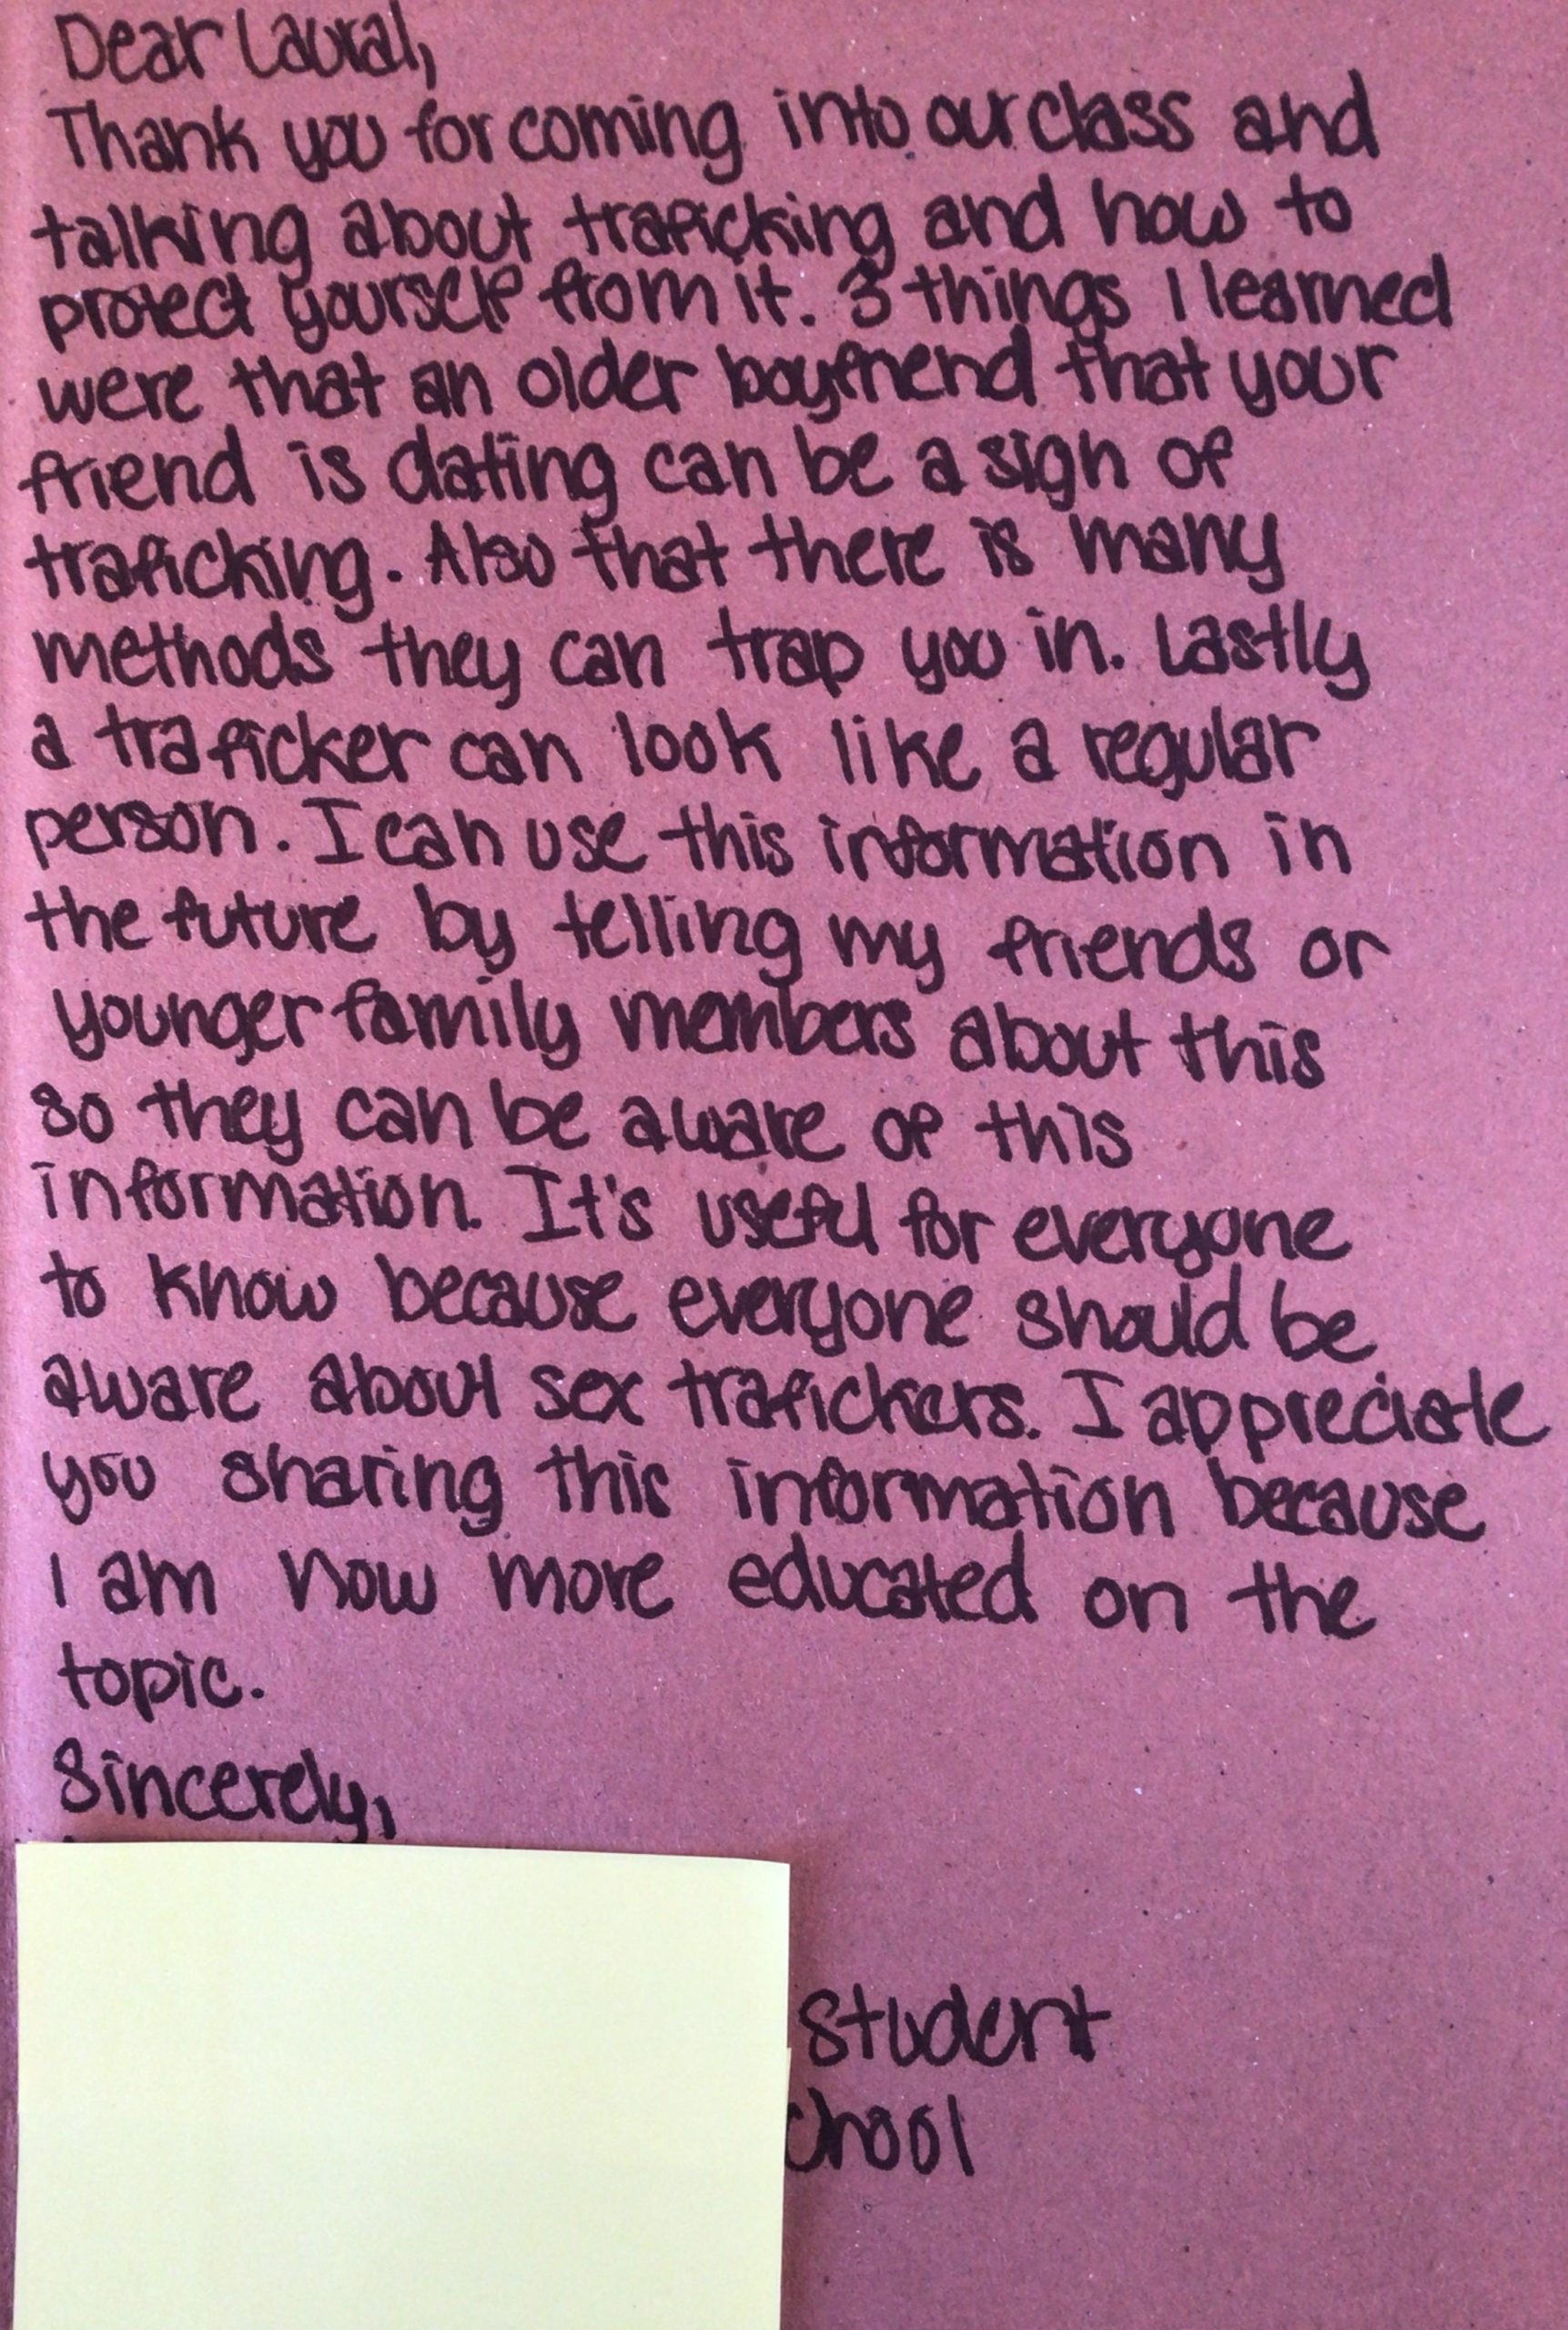 Dear Laural,
Thank you for coming into our class and
talking about traficking and how to
protect yourself from it. 3 things I learned
were that an older boyfriend that your
friend is dating can be a sign of
traficking. Also that there is many
methods they can trap you in. Lastly
a traficker can look like a regular
person. I can use this information in
the future by telling my friends or
younger family members about this
so they can be aware of this
information. It's useful for everyone
to know because everyone should be
aware about sex trafickers. I appreciate
you sharing this information because
I am now more educated on the
topic.
Sincerely,
student
chool